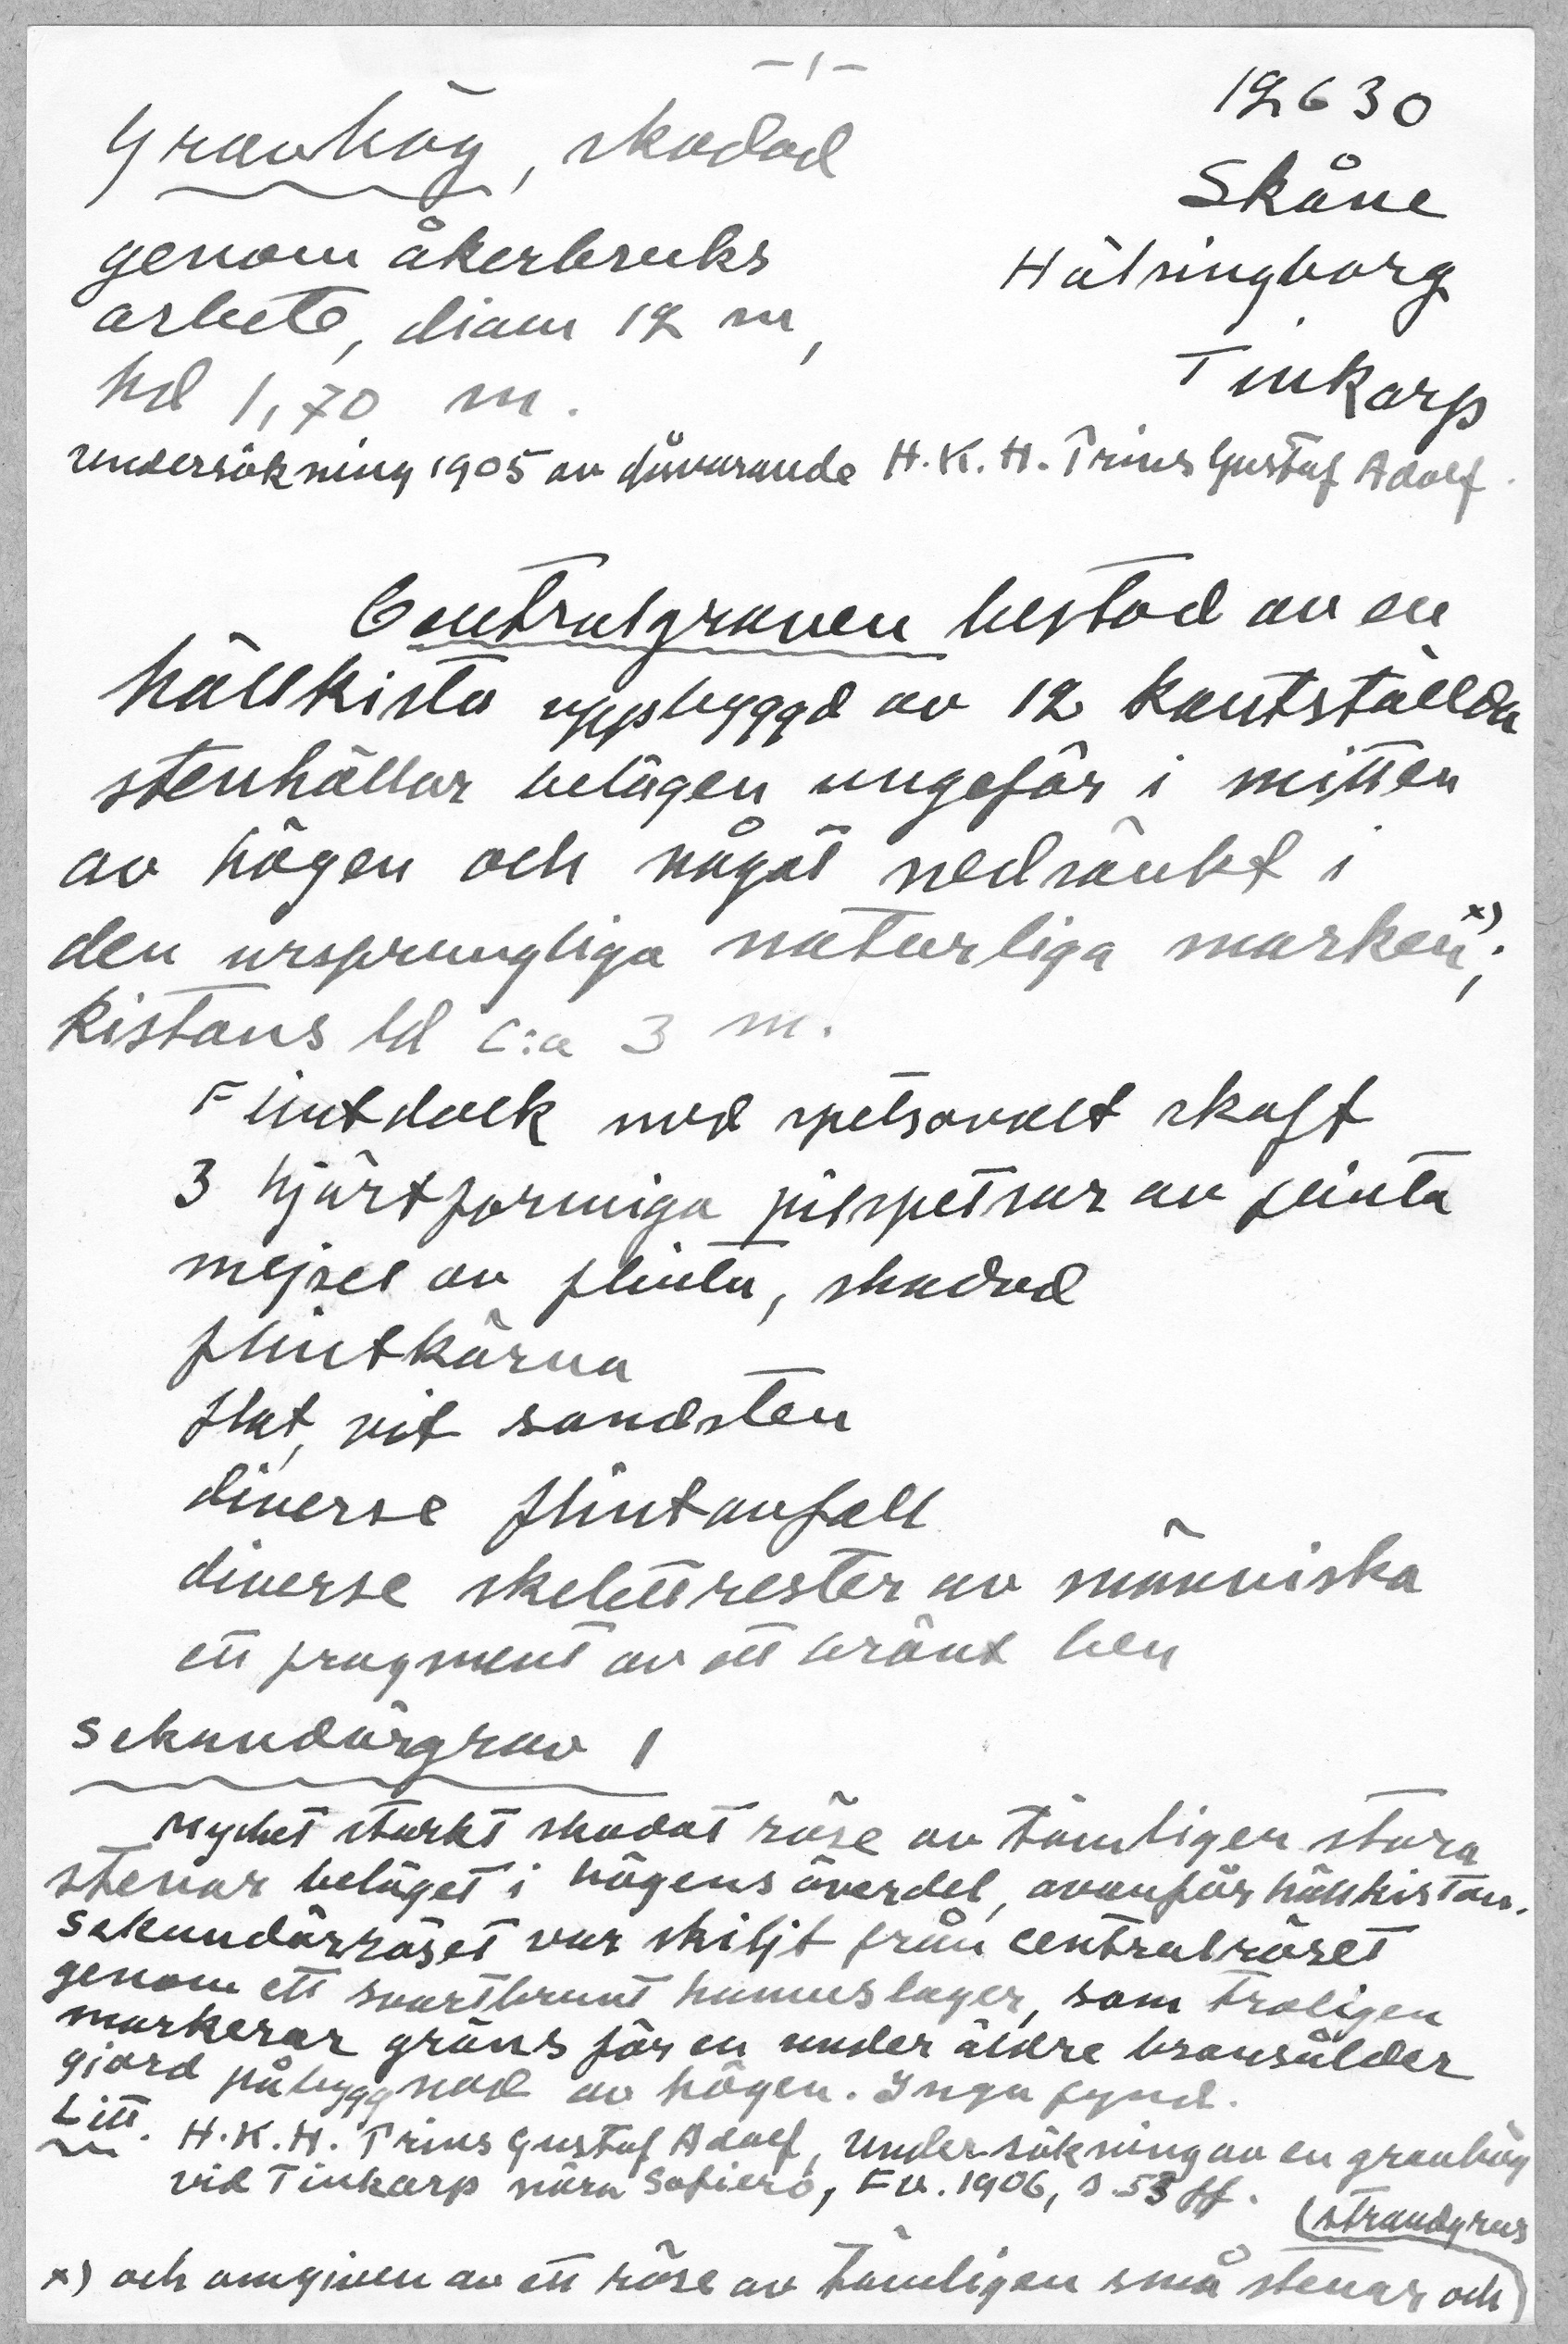 -1-
12630
Gravhög, skadad
Skåne
genom åkerbruks
Hälsingborg
arbete, diam 12 m,
Tinkarp
hd 1,70 m.
undersökning 1905 av dåvarande H.K.H. Prins Gustaf Adolf.
Centralgraven bestod av en
hällkista uppbyggd av 12 kantställda
stenhällar belägen ungefär i mitten
av högen och något nedsänkt i
den ursprungliga naturliga marken x);
kistans ld c:a 3 m.
Flintdolk med spetsovalt skaft
3 hjärtformiga pilspetsar av flinta
mejsel av flinta, skadad
flintkärna
flat, vit sandsten
diverse flintavfall
diverse skelettrester av människa
ett fragment av ett bränt ben
Sekundärgrav 1
Mycket starkt skadat röse av tämligen stora
stenar beläget i högens överdel, ovanför hällkistan.
Sekundärröset var skiljt från centralröset
genom ett svartbrunt humuslager, som troligen
markerar gräns för en under äldre bronsålder
gjord påbyggnad av högen. Inga fynd.
Litt. H.K.H. Prins Gustaf Adolf, Undersökning av en gravhög
vid Tinkarp nära Sofiero, Fv. 1906, s. 53 ff.
x) och omgiven av ett röse av tämligen små stenar och
(strandgrus